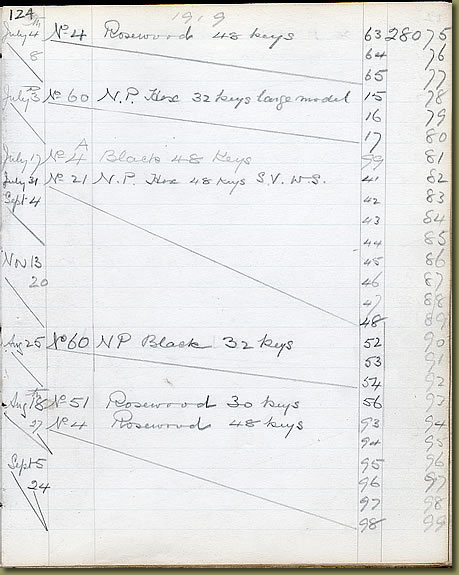 124 1919
July 4 No 4 Rosewood 48 keys 63 28075
8 64 76
65 77
July 3 No 60 N.P. Hex 32 keys large model 15 78
16 79
17 80
A
July 17 No 4 Black 48 Keys 99 81
July 31 No 21 N.P. Hex 48 keys S.V. W.S. 41 82
Sept 4 42 83
43 84
44 85
Nov 13 45 86
20 46 87
47 88
48 89
Aug 25 No 60 NP Black 32 keys 52 90
53 91
54 92
Aug 18 No 51 Rosewood 30 keys 56 93
27 No 4 Rosewood 48 keys 93 94
94 95
Sept 5 95 96
24 96 97
97 98
98 99